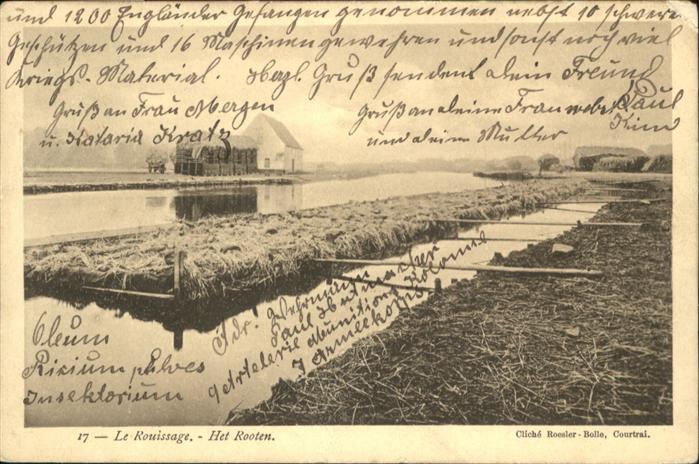 und 1200 Engländer Gefangen genommen nebst 10 schwere
Geschützen und 16 Maschinengewehren und sonst noch viel
Kriegs-Material. Herzl. Gruß sendent dein Freund
Paul
Gruß an Frau Mergen
u. Kataria Kratz
Gruß an deine Frau nebst Kind
und deine Mutter
Adr. Wehrmann
Paul
Artelerie Munitions Kolonne
Armeekorps
Oleum
Risium
Insektorium
17 — Le Rouissage. - Het Rooten.
Cliché Roesler-Bolle, Courtrai.